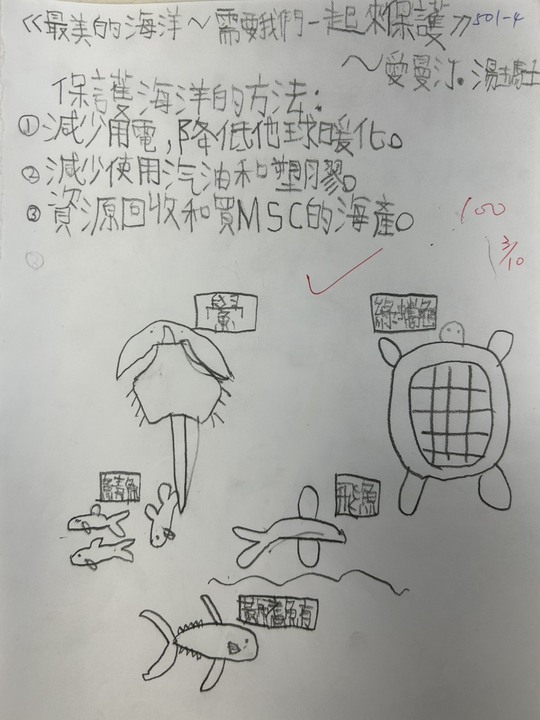 《最美的海洋～需要我們一起來保護》501-4
～愛曼汀．湯士騎士
保護海洋的方法：
①減少用電，降低地球暖化。
②減少使用汽油和塑膠。
③資源回收和買MSC的海產。
100
3/10
鱟
綠蠵龜
鯖魚
飛漁
黃鰭鮪